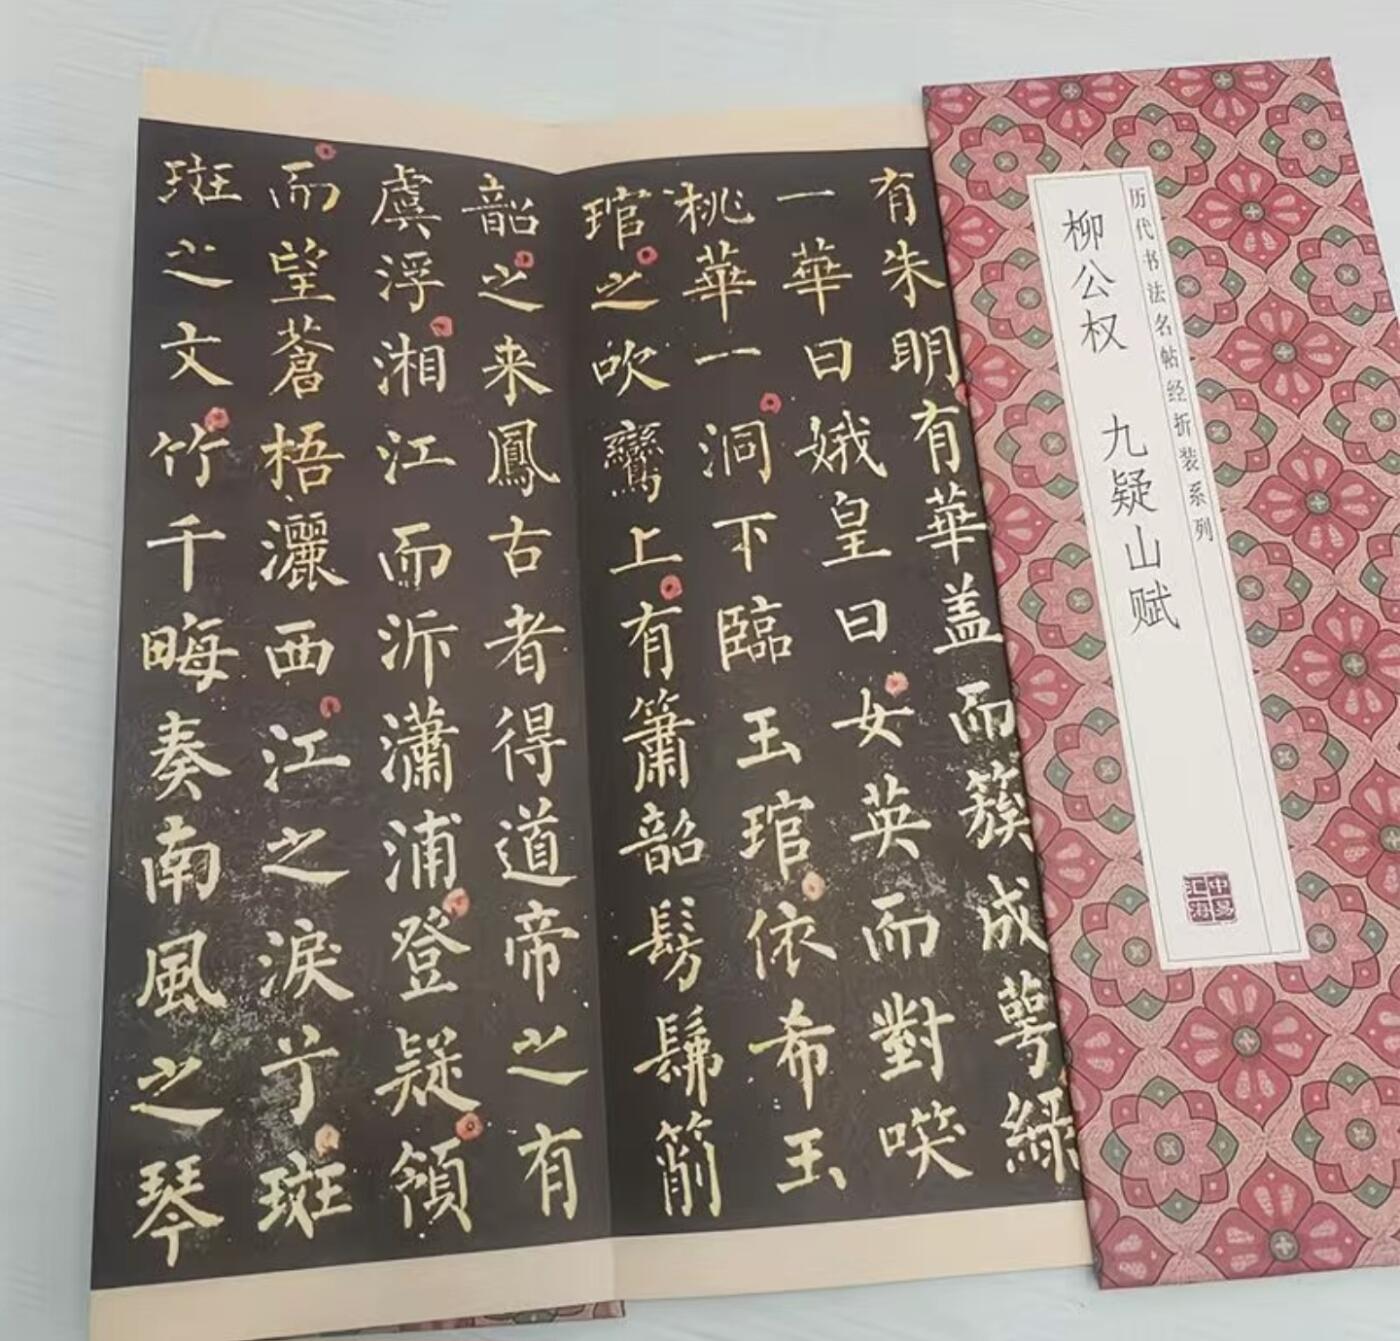 有朱明有華盖而簇成萼綠
一華曰娥皇曰女英而對唉
桃華一洞下臨玉琯依希玉
琯之吹鸞上有簫韶髣髴箾
韶之来鳳古者得道帝之有
虞浮湘江而泝瀟浦登疑領
而望蒼梧灑西江之淚亍斑
斑之文竹千畮奏南風之琴
历代书法名帖经折装系列
柳公权 九疑山赋
中易
汇海